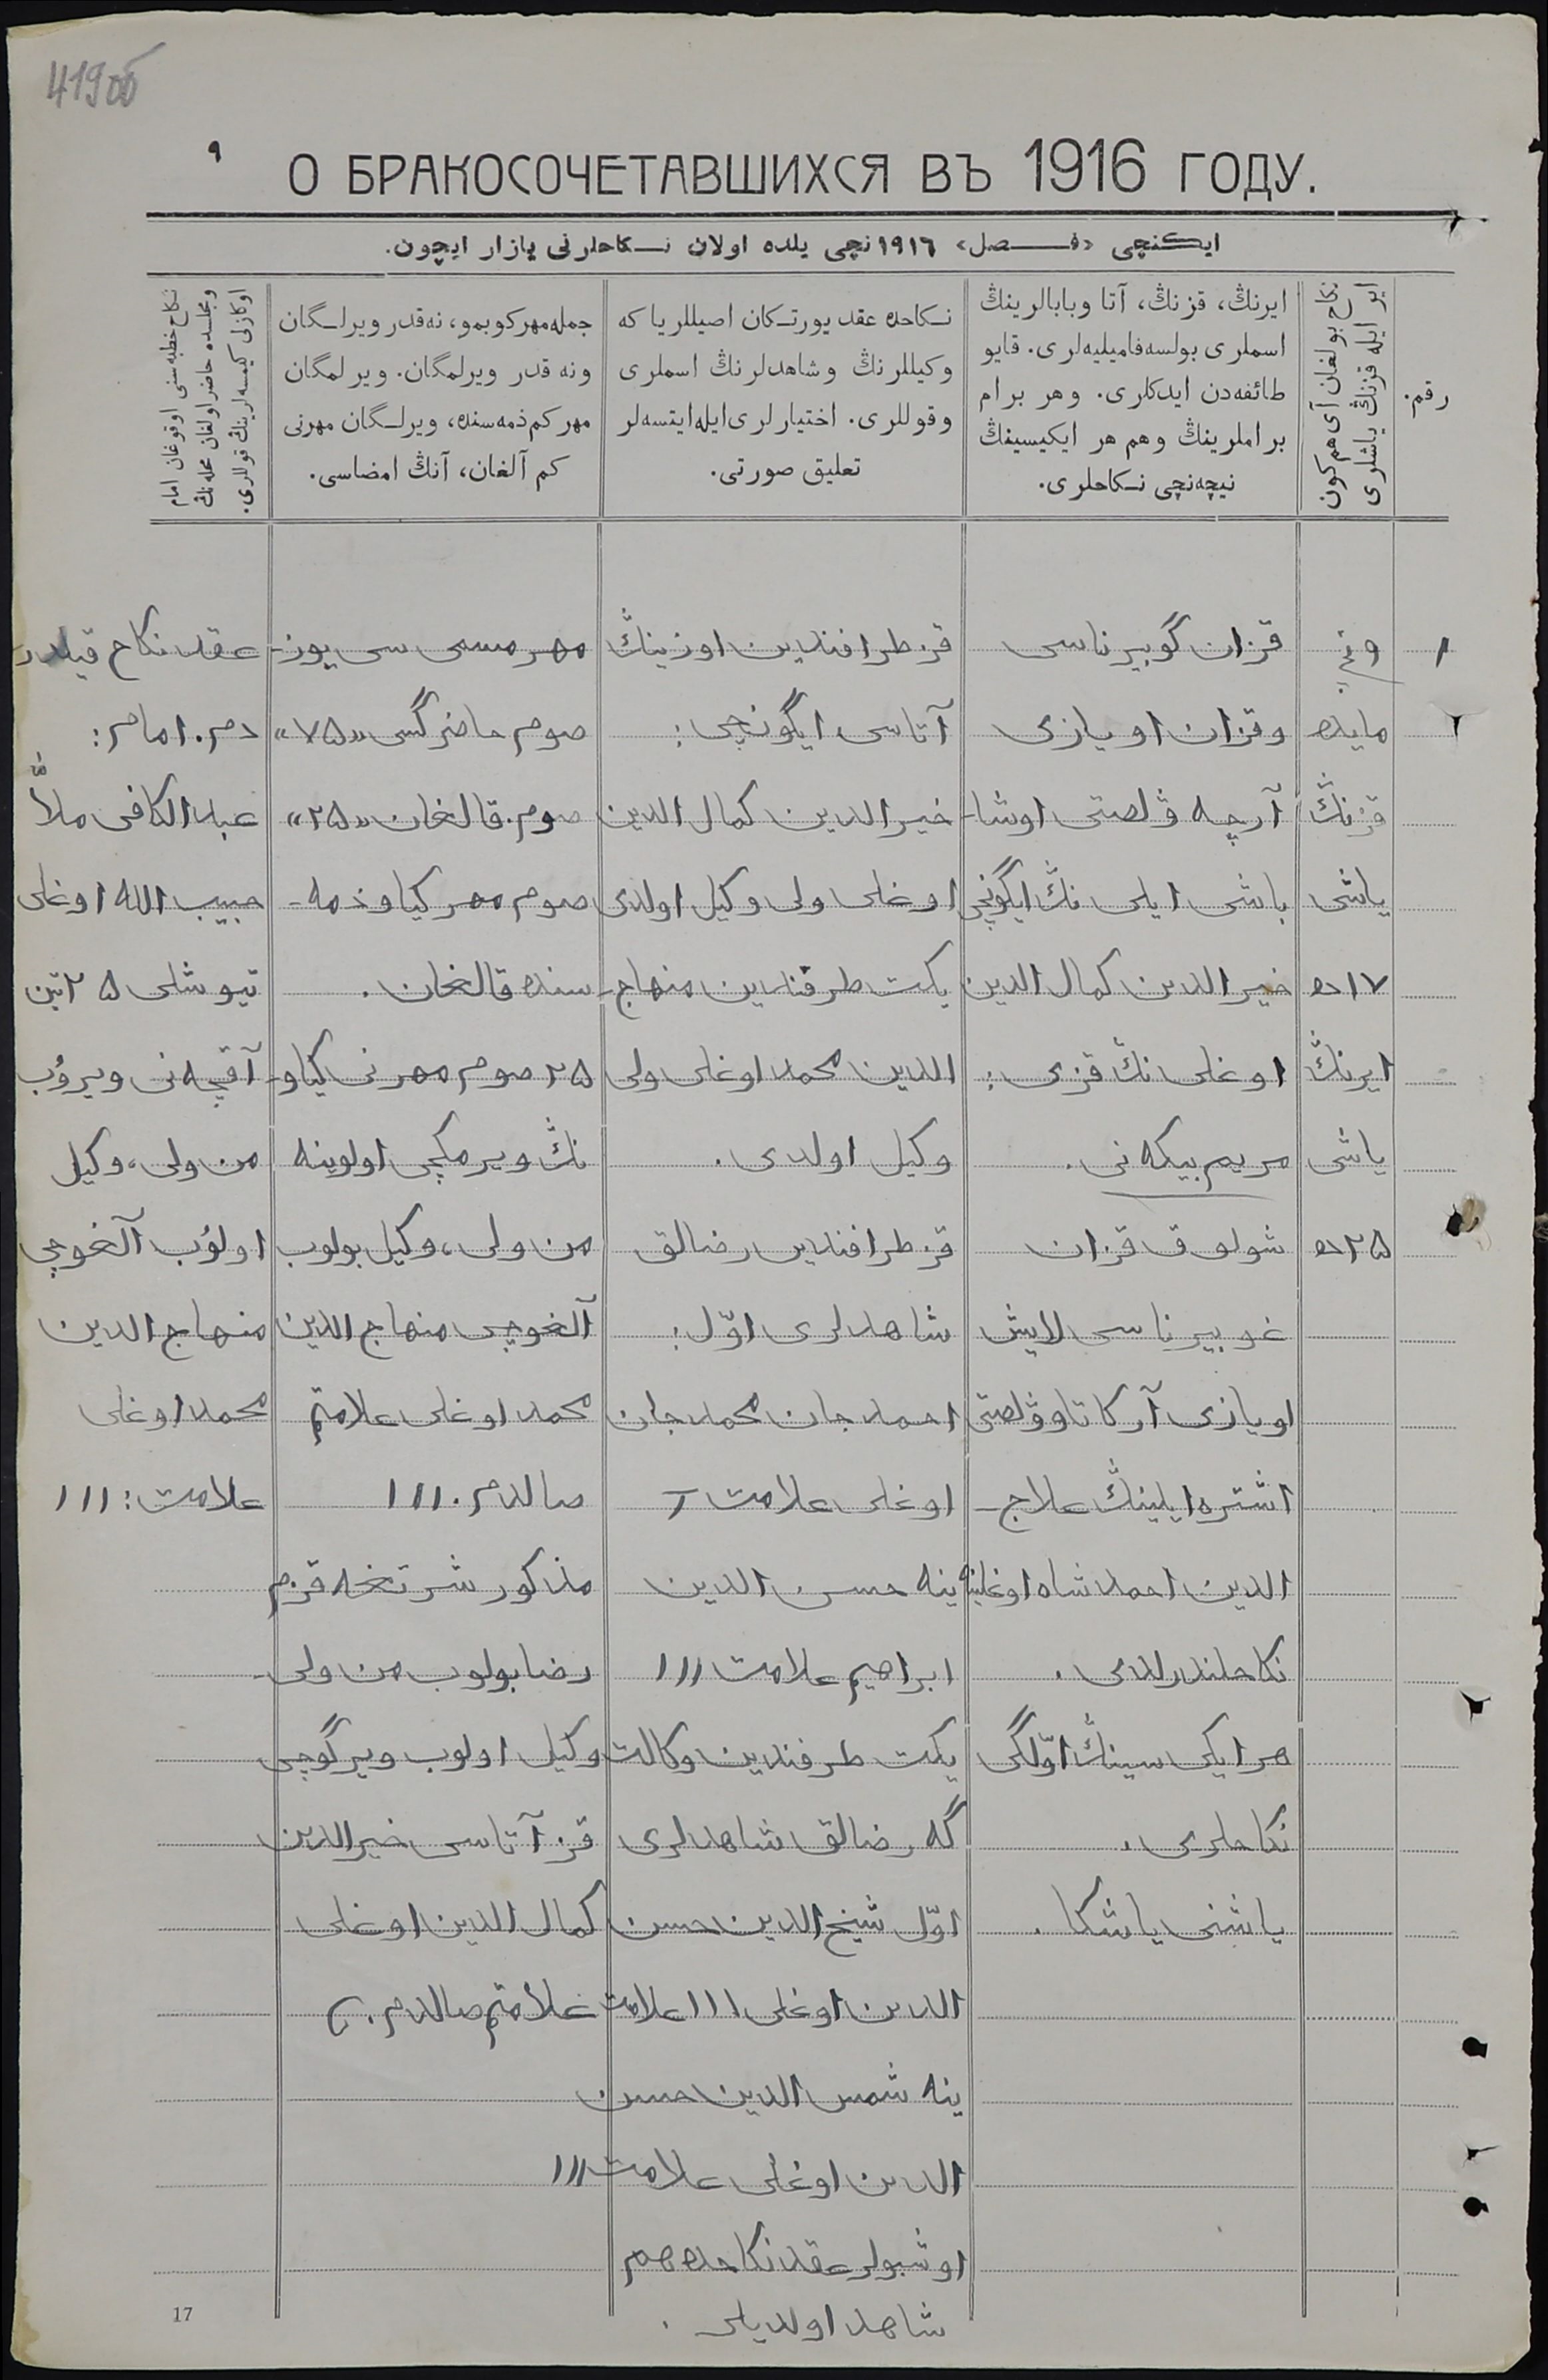 419об
٩
О БРАКОСОЧЕТАВШИХСЯ ВЪ 1916 ГОДУ.
ایكنچی «فصل» ١٩١٦ نچی یلده اولان نكاحلرنی یازار ایچون.
رقم.
نكاح بولغان آی هم كون
ایر ایله قزنڭ یاشلری
ایرنڭ، قزنڭ، آتا وبابالرینڭ
اسملری بولسه فامیلیه‌لری. قایو
طائفه‌دن ایدكلری. وهر برام
براملرینڭ وهم هر ایكیسینڭ
نیچه‌نچی نكاحلری.
نكاحده عقد یورتكان اصیللر یا كه
وكیللرنڭ وشاهدلرنڭ اسملری
وقوللری. اختیارلری ایله ایتسه‌لر
تعلیق صورتی.
جمله مهر كوبمو، نه‌قدر ویرلگان
ونه قدر ویرلمگان. ویرلمگان
مهر كم ذمه‌سنده، ویرلگان مهرنی
كم آلغان، آنڭ امضاسی.
نكاح خطبه‌سنی اوقوغان امام
ومجلسده حاضر اولغان محله‌نڭ
اوكازلی كیسه‌لرینڭ قوللری.
١
٩ نچی
مایده
قزنڭ
یاشی
١٧ ده
ایرنڭ
یاشی
٢٥ ده
قزان گوبیرناسی
وقزان اویازی
آرچه ۋلصتی اوشا-
باشی ایلی نڭ ایگونچی
خیرالدین كمال الدین
اوغلی نڭ قزی:
مریم بیكه نی.
شولوق قزان
غوبیرناسی لایش
اویازی آركاتاو ۋلصتی
اشتره ایلینڭ علاج-
الدین احمدشاه اوغلینه
نكاحلندرلدی.
هر ایكی سینڭ اوّلگی
نكاحلری.
یاشنی یاشكا.
قز طرافندین اوزینڭ
آتاسی ایگونچی:
خیرالدین كمال الدین
اوغلی ولی وكیل اولدی
یكت طرفندین منهاج-
الدین محمد اوغلی ولی
وكیل اولدی.
قز طرافندین رضالق
شاهدلری اوّل:
احمد جان محمد جان
اوغلی علامت T
ینه حسن الدین
ابراهیم علامت ااا
یكت طرفندین وكالت
گه رضالق شاهدلری
اوّل شیخ الدین حسن
الدین اوغلی ااا علامت
ینه شمس الدین حسن
الدین اوغلی علامت ااا
اوشبولر عقد نكاحده هم
شاهد اولدیلر.
مهر مسمی سی یوز-
صوم حاضرگسی «٧٥»
صوم. قالغان «٢٥»
صوم مهر كیاو ذمه-
سنده قالغان.
٢٥ صوم مهرنی كیاو-
نڭ ویرمكچی اولوینه
من ولی، وكیل بولوب
آلغوچی منهاج الدین
محمد اوغلی علامتم
صالدم. ااا
مذكور شرتغه قزم
رضا بولوب من ولی-
وكیل اولوب ویرگوچی
قز آتاسی خیرالدین
كمال الدین اوغلی
علامتم صالدم.
عقد نكاح قیلدر-
دم. امام:
عبد الكافی ملاّ
حبیب الله اوغلی
تیوشلی ٢٥ تین
آقچه نی ویرۇب
من ولی، وكیل
اولۇب آلغوچی
منهاج الدین
محمد اوغلی
علامت: ااا
17